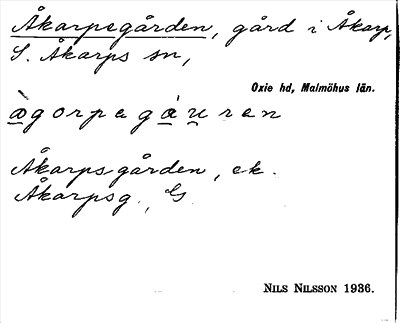 Åkarpegården, gård i Åkarp,
S. Åkarps sn,
Oxie hd, Malmöhus län.
Åkarps-gården, ek.
Åkarpsg.,
NILS NILSSON 1936.